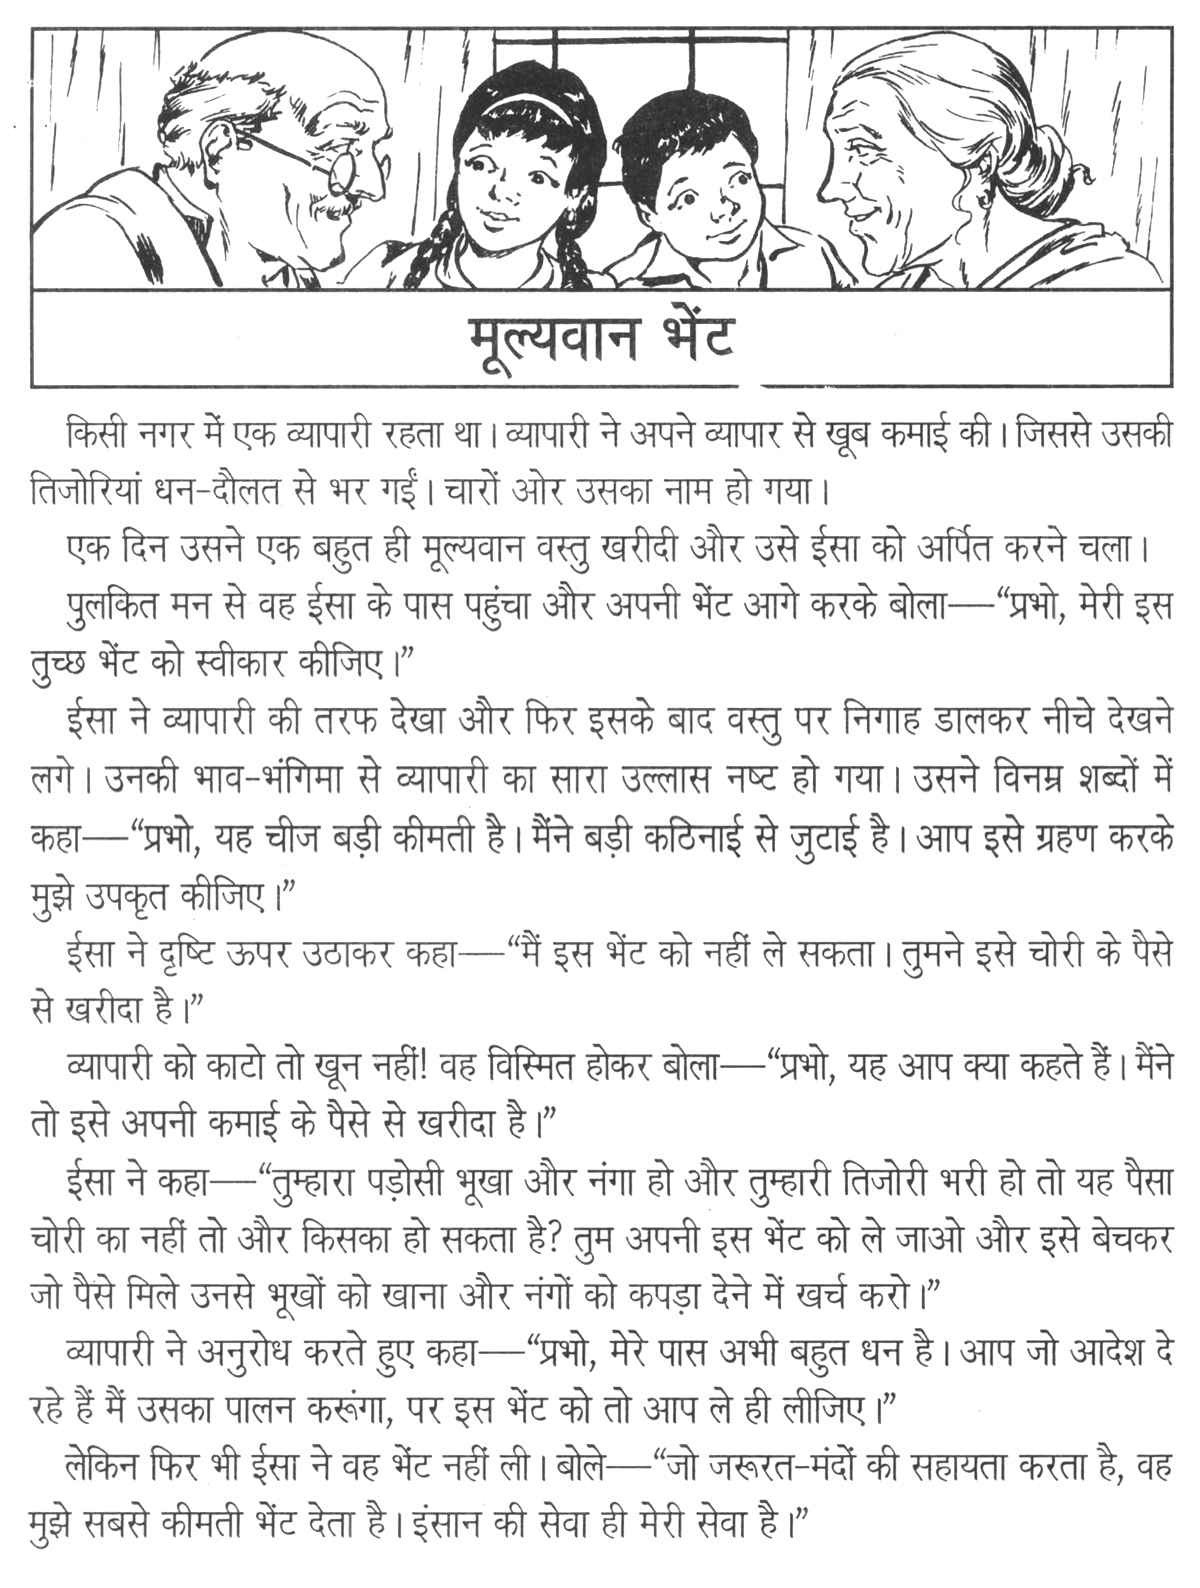 मूल्यवान भेंट
किसी नगर में एक व्यापारी रहता था। व्यापारी ने अपने व्यापार से खूब कमाई की। जिससे उसकी
तिजोरियां धन-दौलत से भर गईं। चारों ओर उसका नाम हो गया।
एक दिन उसने एक बहुत ही मूल्यवान वस्तु खरीदी और उसे ईसा को अर्पित करने चला।
पुलकित मन से वह ईसा के पास पहुंचा और अपनी भेंट आगे करके बोला—“प्रभो, मेरी इस
तुच्छ भेंट को स्वीकार कीजिए।”
ईसा ने व्यापारी की तरफ देखा और फिर इसके बाद वस्तु पर निगाह डालकर नीचे देखने
लगे। उनकी भाव-भंगिमा से व्यापारी का सारा उल्लास नष्ट हो गया। उसने विनम्र शब्दों में
कहा—“प्रभो, यह चीज बड़ी कीमती है। मैंने बड़ी कठिनाई से जुटाई है। आप इसे ग्रहण करके
मुझे उपकृत कीजिए।”
ईसा ने दृष्टि ऊपर उठाकर कहा—“मैं इस भेंट को नहीं ले सकता। तुमने इसे चोरी के पैसे
से खरीदा है।”
व्यापारी को काटो तो खून नहीं! वह विस्मित होकर बोला—“प्रभो, यह आप क्या कहते हैं। मैंने
तो इसे अपनी कमाई के पैसे से खरीदा है।”
ईसा ने कहा—“तुम्हारा पड़ोसी भूखा और नंगा हो और तुम्हारी तिजोरी भरी हो तो यह पैसा
चोरी का नहीं तो और किसका हो सकता है? तुम अपनी इस भेंट को ले जाओ और इसे बेचकर
जो पैसे मिले उनसे भूखों को खाना और नंगों को कपड़ा देने में खर्च करो।”
व्यापारी ने अनुरोध करते हुए कहा—“प्रभो, मेरे पास अभी बहुत धन है। आप जो आदेश दे
रहे हैं मैं उसका पालन करूंगा, पर इस भेंट को तो आप ले ही लीजिए।”
लेकिन फिर भी ईसा ने वह भेंट नहीं ली। बोले—“जो जरूरत-मंदों की सहायता करता है, वह
मुझे सबसे कीमती भेंट देता है। इंसान की सेवा ही मेरी सेवा है।”